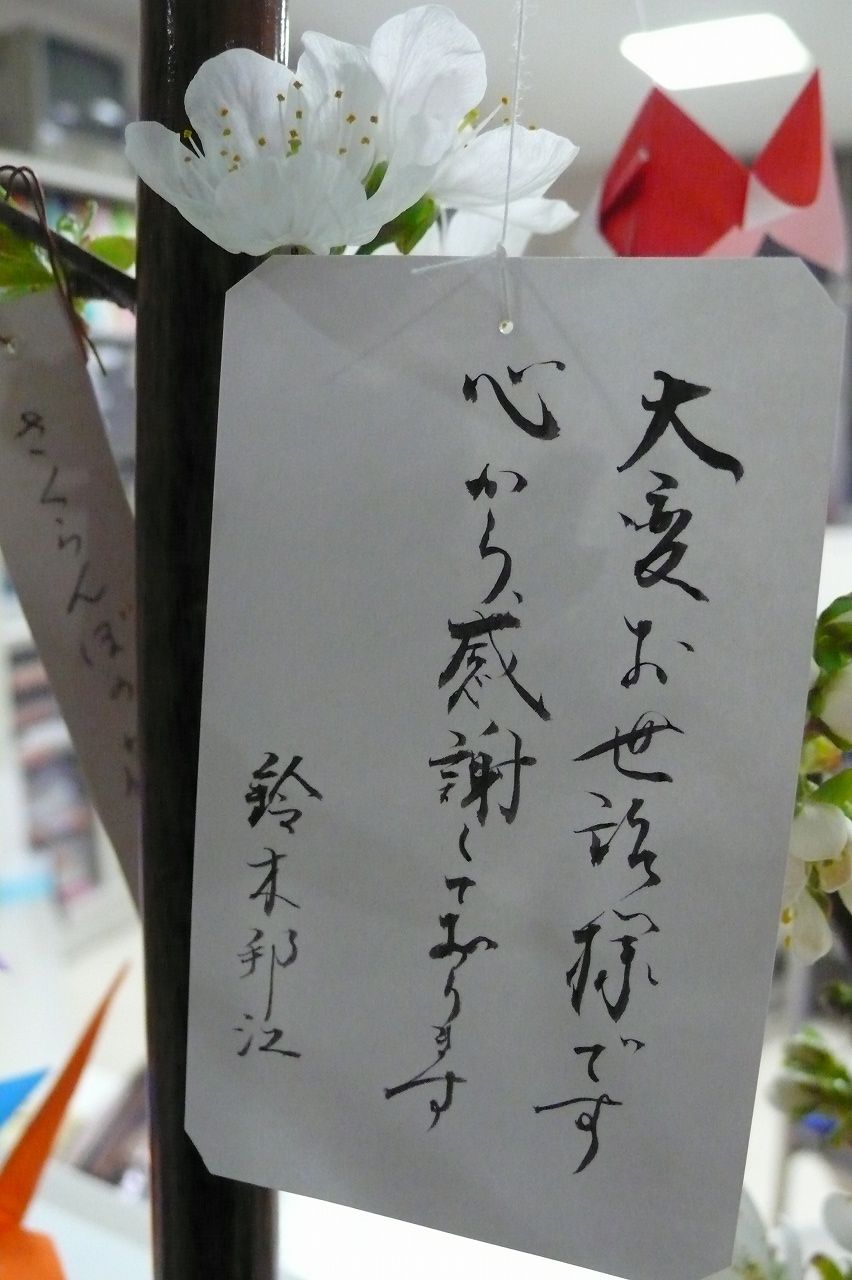 大変お世話様です
心から感謝しております
鈴木邦江
さくらんぼの